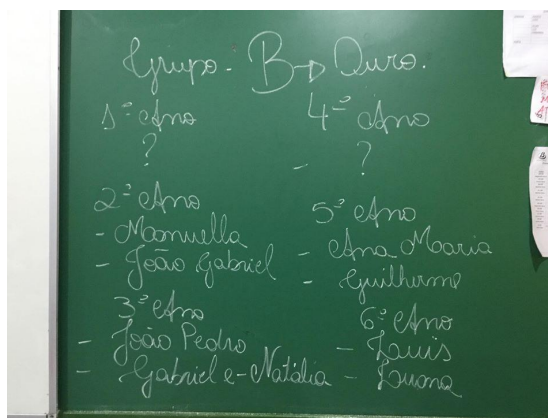 Grupo - B → Ouro.
1º Ano
?
2º Ano
- Manuella
- João Gabriel
3º Ano
- João Pedro
- Gabriel e - Natália
4º Ano
- ?
5º Ano
- Ana Maria
- Guilherme
6º Ano
- Luis
- Luana